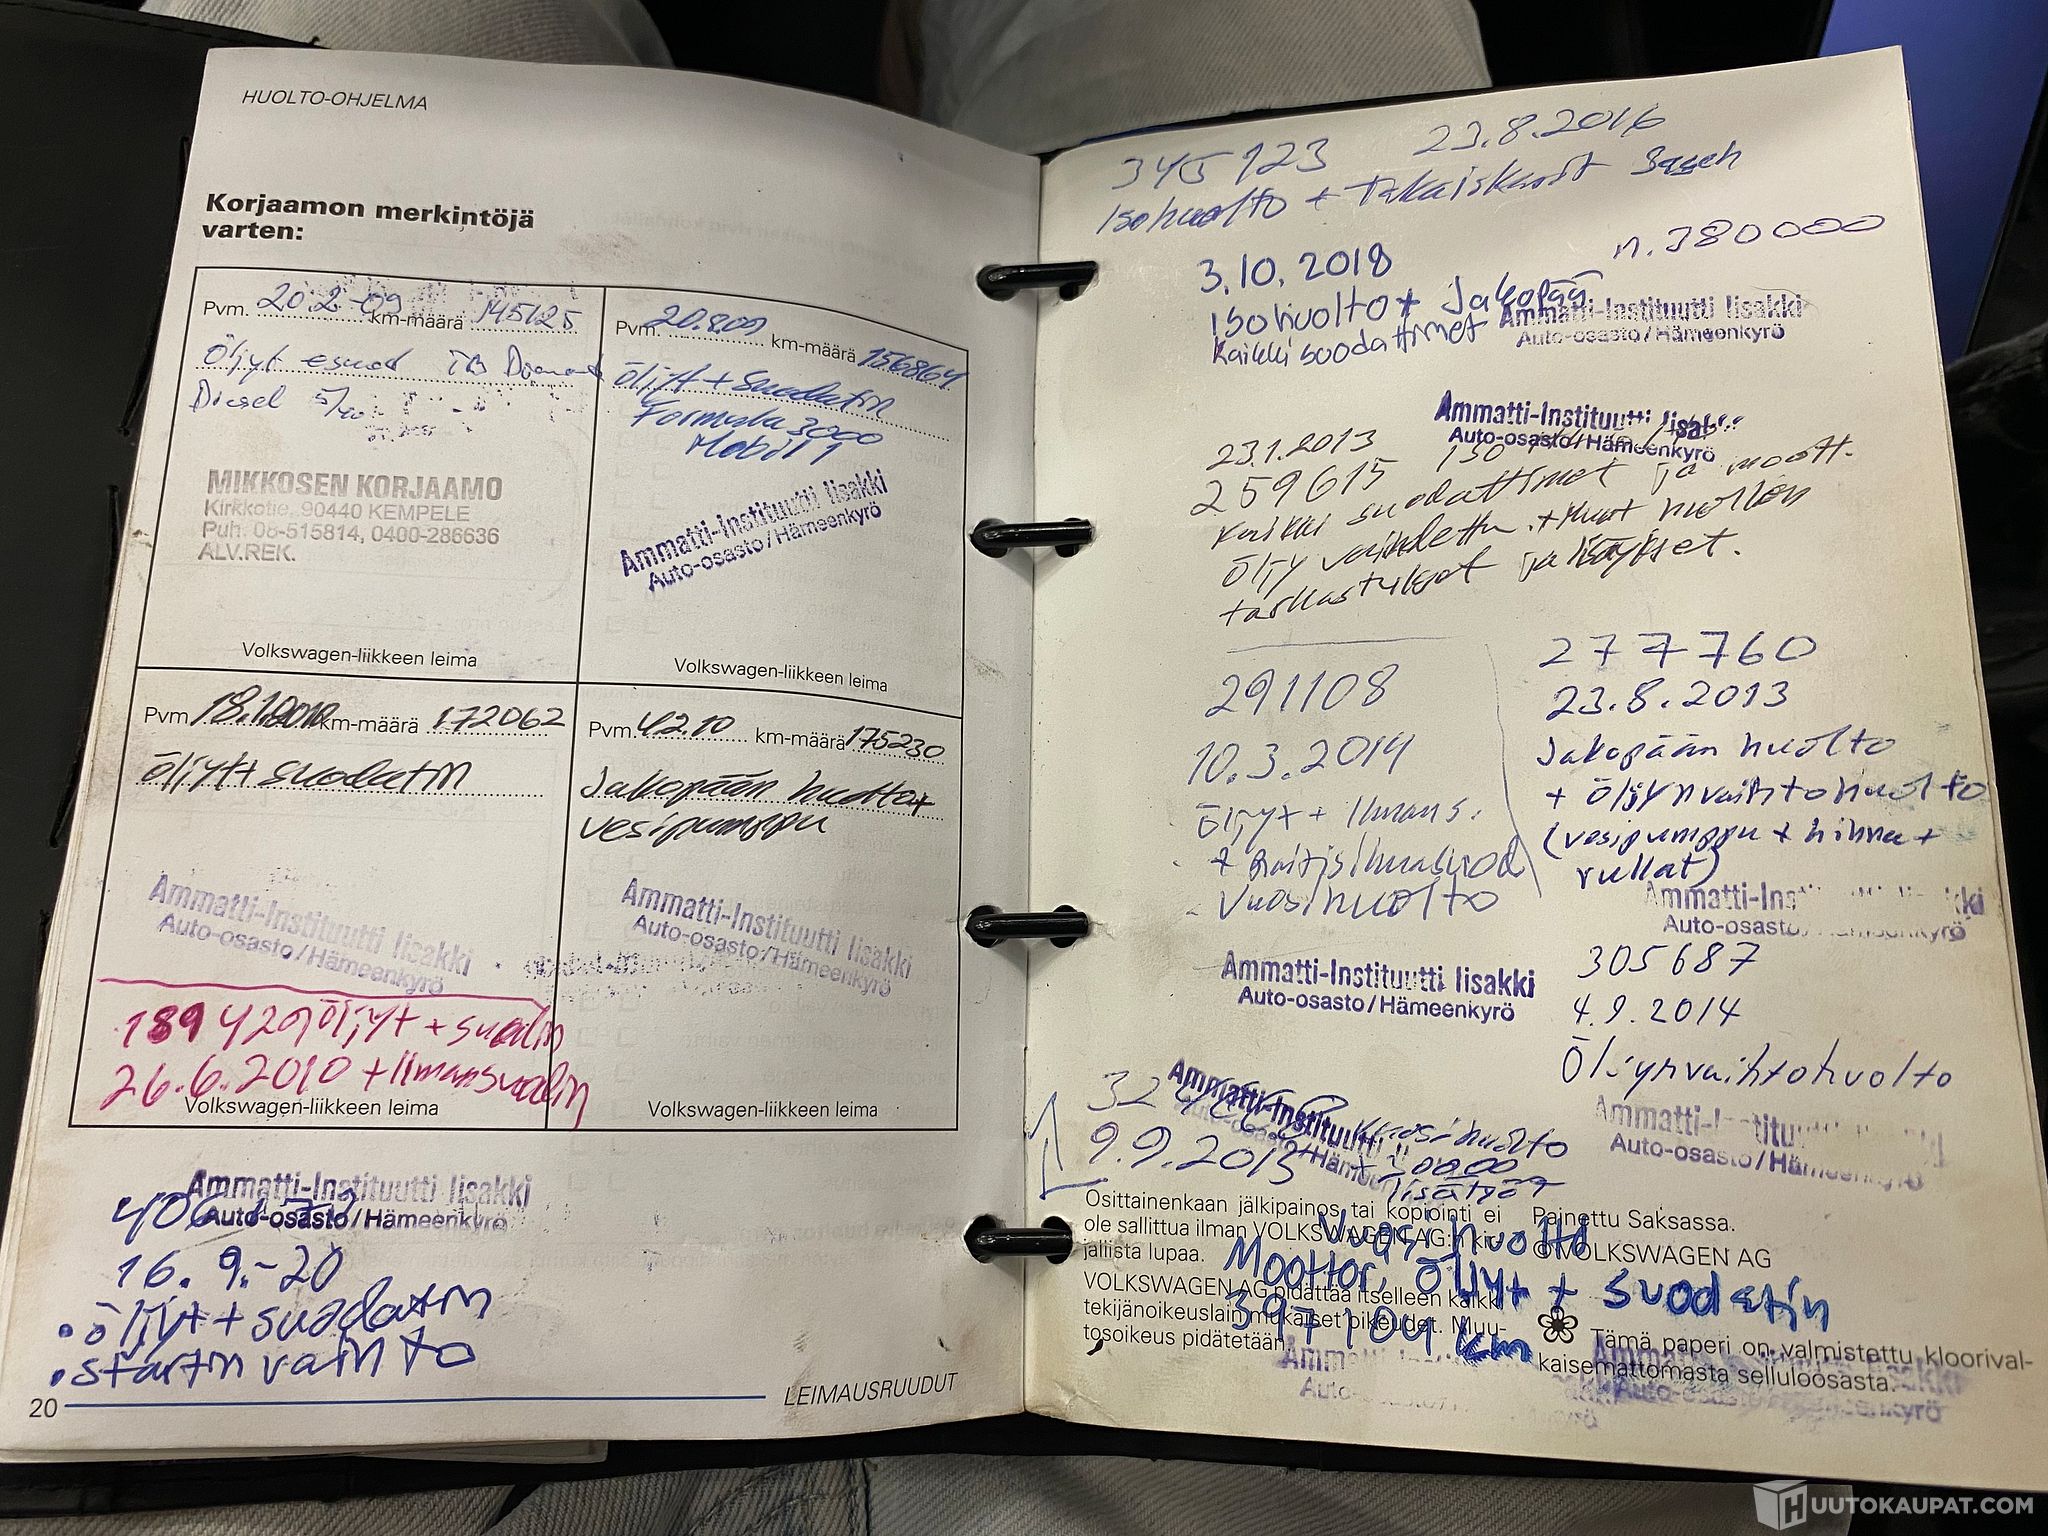 HUOLTO-OHJELMA
Korjaamon merkintöjä
varten:
Pvm. 20.2.-09 km-määrä 145125
Öljyt
Diesel 5/40
MIKKOSEN KORJAAMO
Kirkkotie, 90440 KEMPELE
Puh. 08-515814, 0400-286636
ALV.REK.
Volkswagen-liikkeen leima
Pvm. 20.8.09 km-määrä 156864
Öljyt + suodatin
Formula 3000
Mobil 1
Ammatti-Instituutti Iisakki
Auto-osasto/Hämeenkyrö
Volkswagen-liikkeen leima
Pvm. 18.1.2010 km-määrä 172062
öljyt + suodatin
Ammatti-Instituutti Iisakki
Auto-osasto/Hämeenkyrö
189420 öljyt + suodatin
26.6.2010 + Ilmansuodatin
Volkswagen-liikkeen leima
Pvm. 4.2.10 km-määrä 175230
Jakopään huolto +
vesipumppu
Ammatti-Instituutti Iisakki
Auto-osasto/Hämeenkyrö
Volkswagen-liikkeen leima
Ammatti-Instituutti Iisakki
Auto-osasto/Hämeenkyrö
16.9.-20
• öljyt + suodatin
• startin vaihto
20
LEIMAUSRUUDUT
345123 23.8.2016
Isohuolto + Takaiskarit
n. 380000
3.10.2018
Isohuolto + Jakopää
Kaikki suodattimet
Ammatti-Instituutti Iisakki
Auto-osasto/Hämeenkyrö
Ammatti-Instituutti Iisakki
Auto-osasto/Hämeenkyrö
23.1.2013
259615
Kaikki suodattimet ja moott.
öljy vaihdettu + muut huollon
tarkastukset ja lisäykset.
277760
23.8.2013
Jakopään huolto
+ Öljynvaihtohuolto
(vesipumppu + hihna +
rullat)
Ammatti-Instituutti Iisakki
Auto-osasto/Hämeenkyrö
291108
10.3.2014
Öljyt + Ilmans.
+ Raitisilmasuod
Vuosihuolto
Ammatti-Instituutti Iisakki
Auto-osasto/Hämeenkyrö
305687
4.9.2014
Öljynvaihtohuolto
Ammatti-Instituutti
Auto-osasto/Hämeenkyrö
Ammatti-Instituutti
Vuosihuolto
9.9.2015 + 30000
lisätyöt
Osittainenkaan jälkipainos tai kopiointi ei
ole sallittua ilman VOLKSWAGEN AG:n kir-
jallista lupaa.
VOLKSWAGEN AG pidättää itselleen kaikki
tekijänoikeuslain mukaiset oikeudet. Muu-
tosoikeus pidätetään.
Painettu Saksassa.
© VOLKSWAGEN AG
Vuosihuolto
Moottori, Öljyt + suodatin
397104 km
Tämä paperi on valmistettu kloorival-
kaisemattomasta selluloosasta.
HUUTOKAUPAT.COM